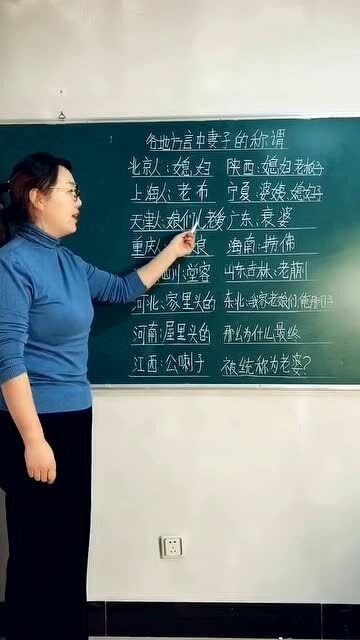 各地方言中妻子的称谓
北京人：媳妇 陕西：媳妇 老板子
上海人：老布 宁夏：婆姨、媳妇子
天津人：娘们儿 广东、衰婆
重庆人 娘 海南：捞佛
川：堂客 山东吉林：老萠
河北：家里头的 东北：我家老娘们
河南：屋里头的 那么为什么最终
江西：公喇子 被统称为老婆？